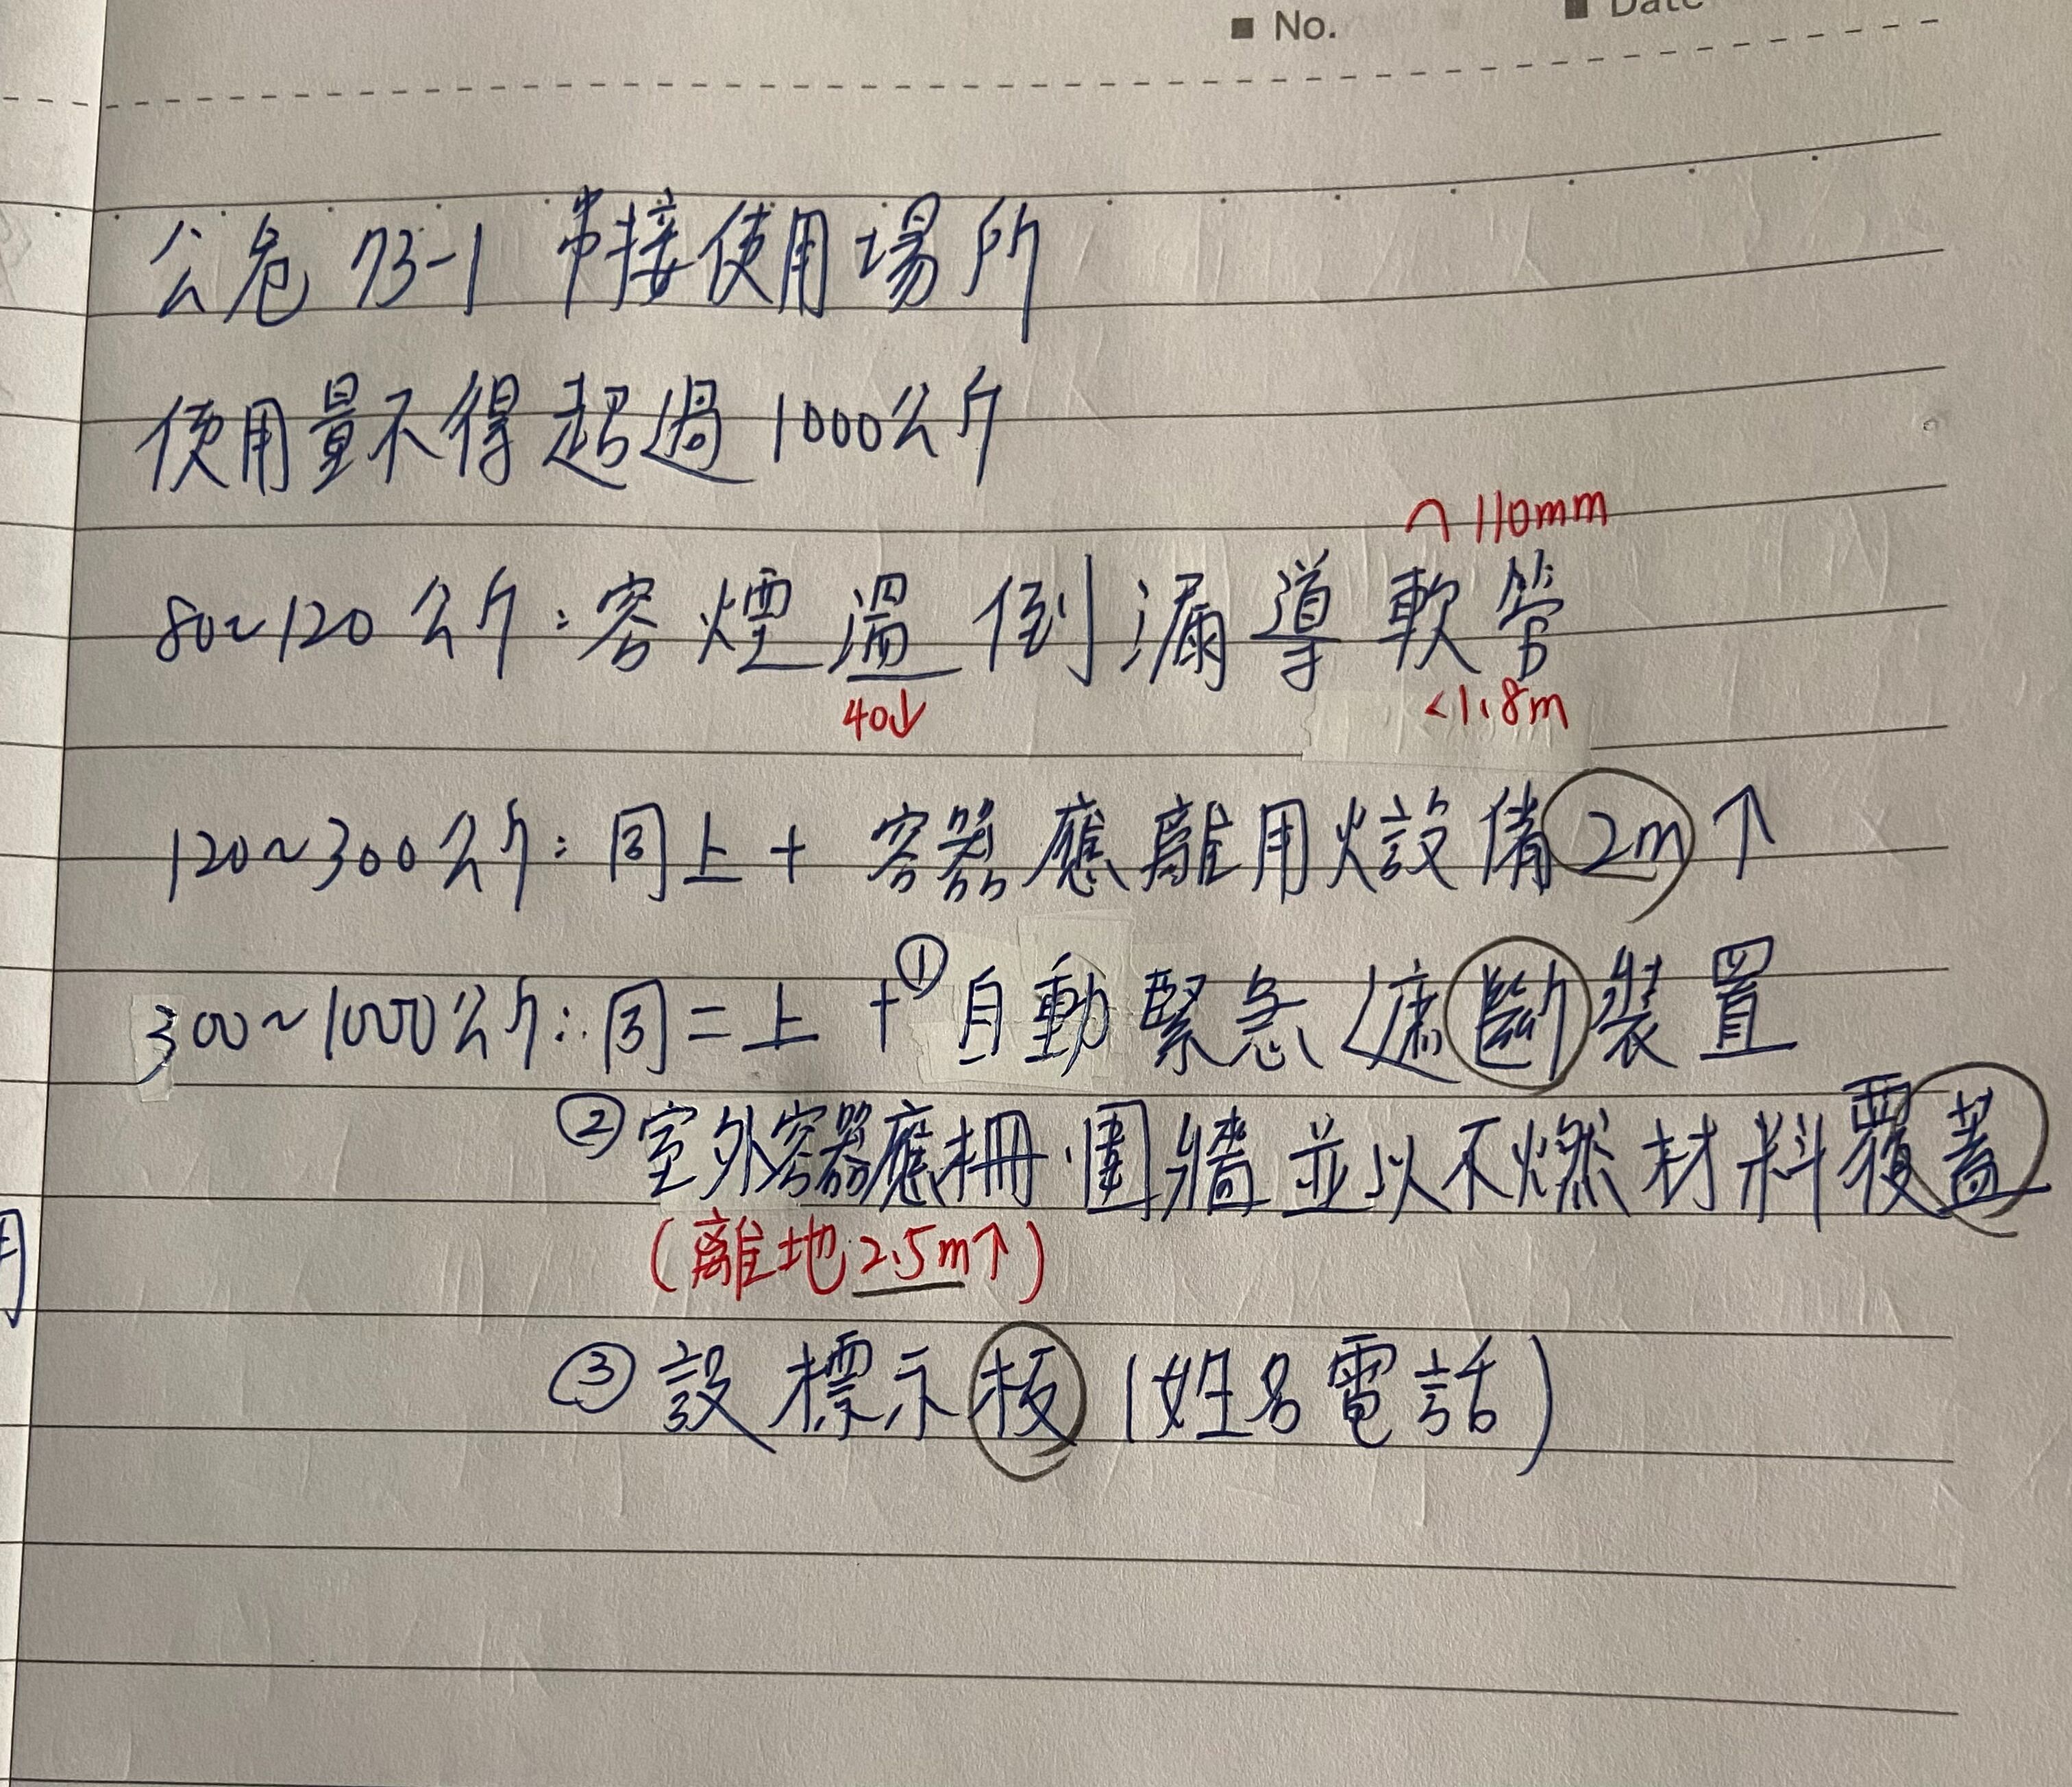 ■ No. ■ Date
公危 73-1 串接使用場所
使用量不得超過 1000公斤
110mm
80~120公斤:容煙溫倒漏導軟管
40↓ <1.8m
120~300公斤:同上+容器應離用火設備2m↑
300~1000公斤:同=上+①自動緊急遮斷裝置
②室外容器應柵.圍牆並以不燃材料覆蓋
(離地2.5m↑)
③設標示板(姓名電話)